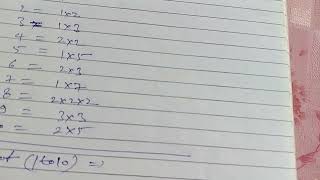 2 = 1×2
3 = 1×3
4 = 2×2
5 = 1×5
6 = 2×3
7 = 1×7
8 = 2×2×2
9 = 3×3
= 2×5
of (1to10) =